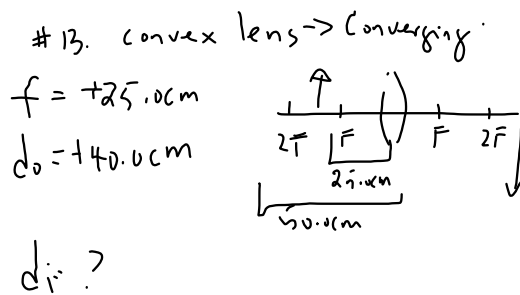 #13. convex lens -> Converging.
f = +25.0cm
do = +40.0cm
2F F F 2F
25.0cm
50.0cm
di = ?